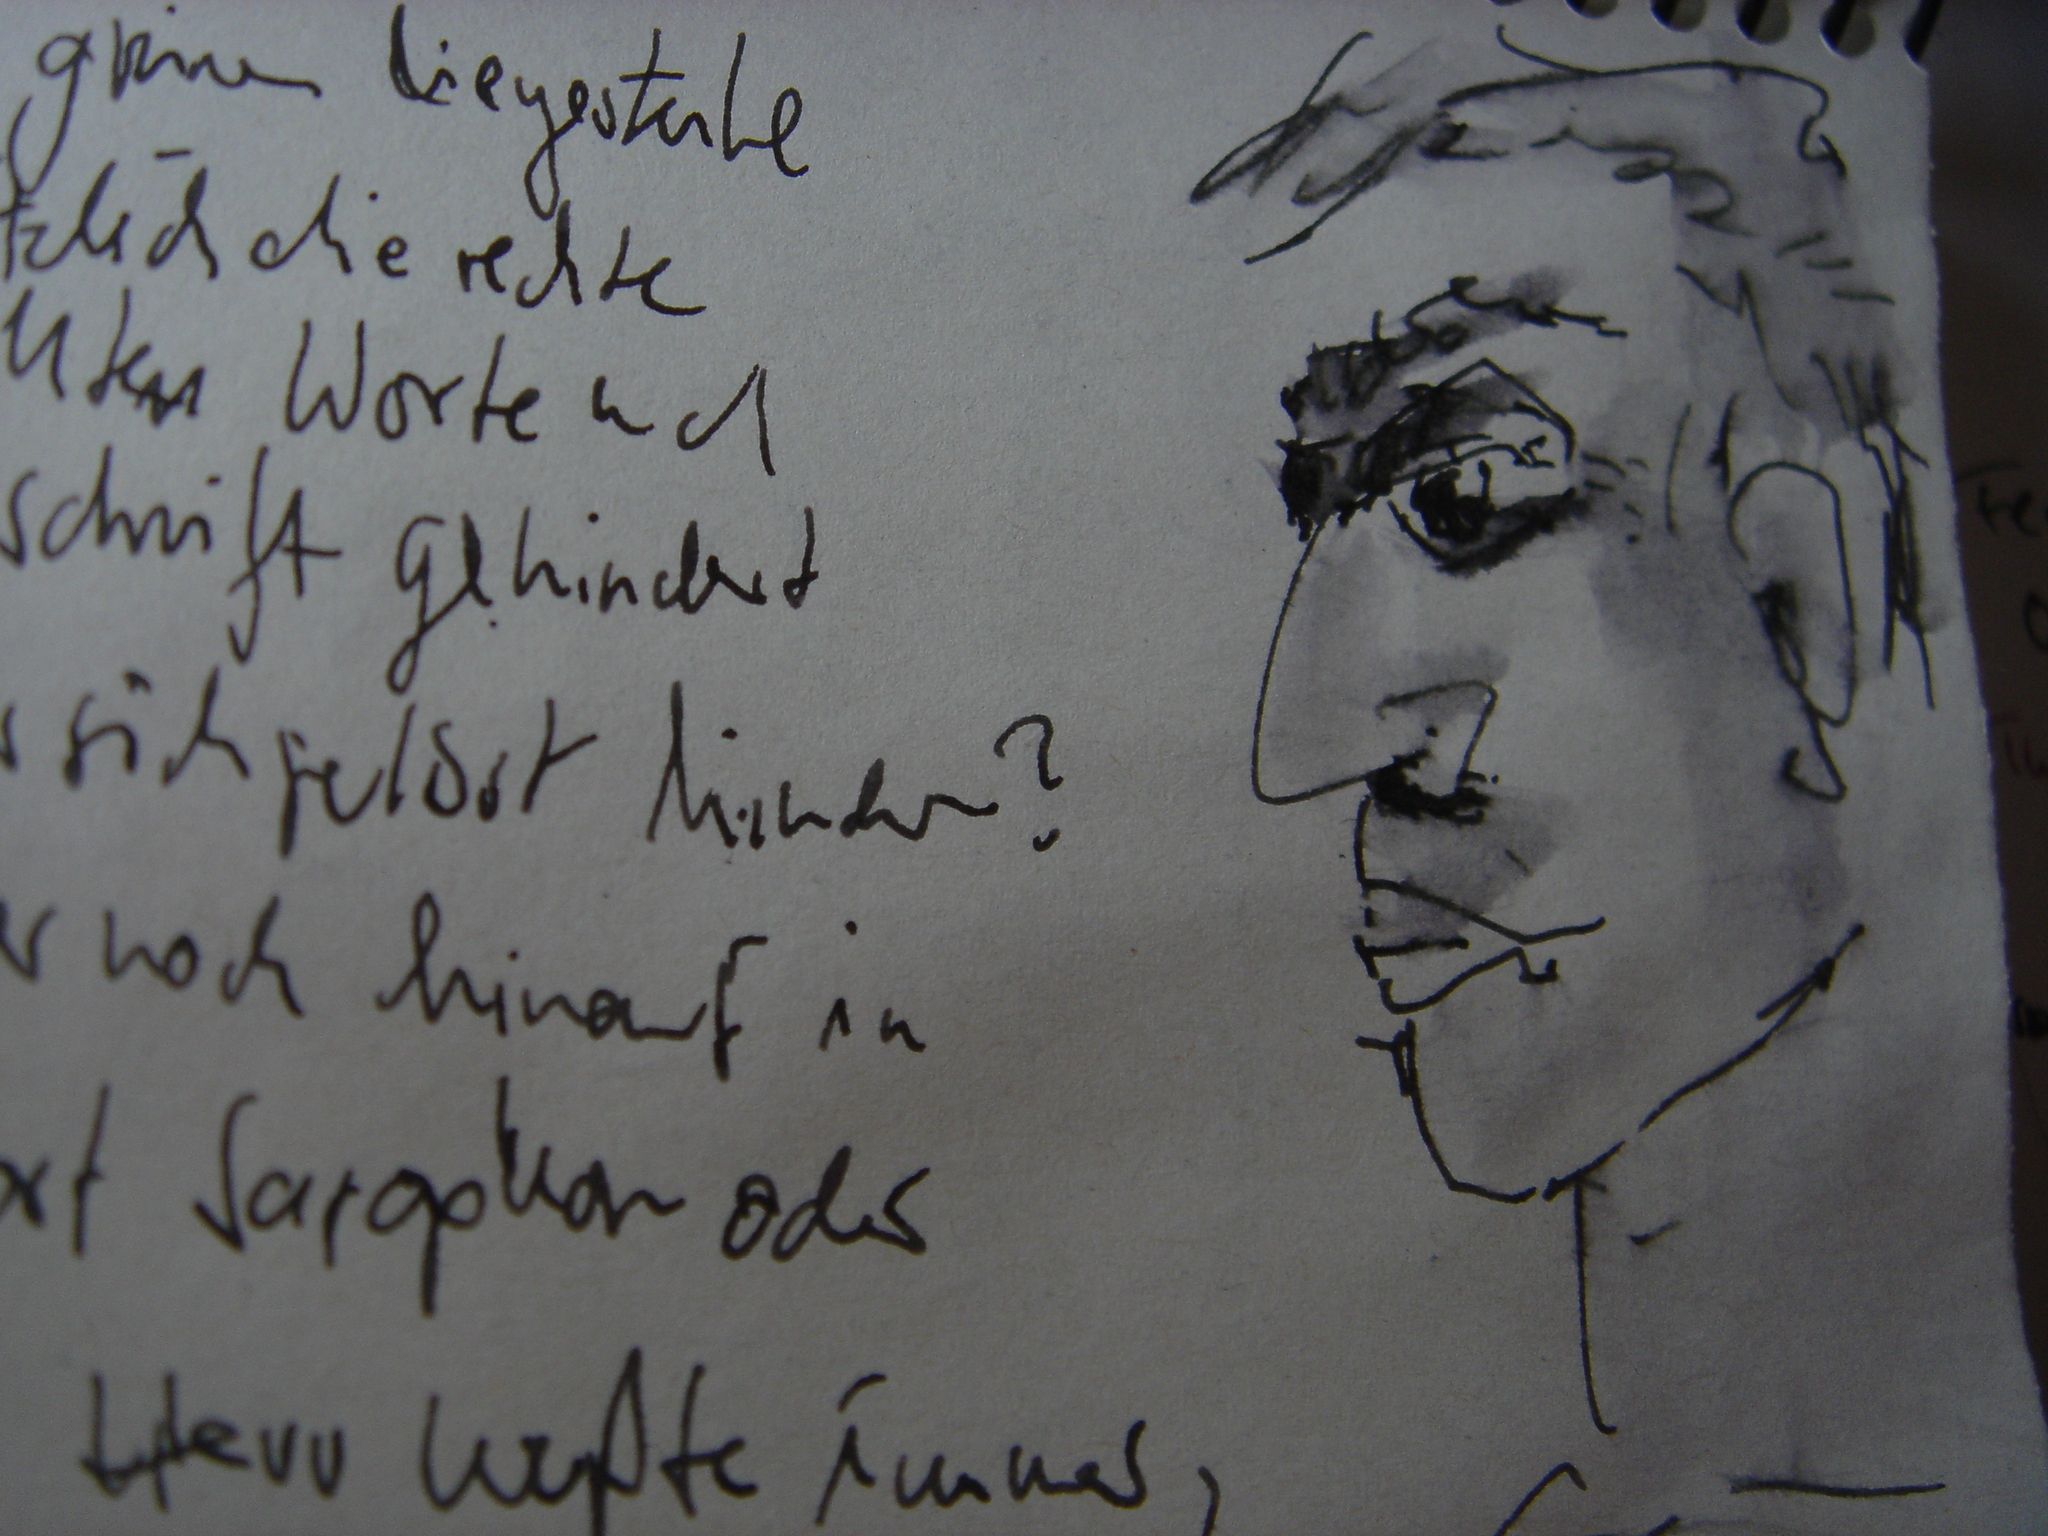 grünen Liegestühle
tzlich die rechte
lltem Worte und
schrift gehindert
sich selbst hindern?
er noch hinauf in
ort Saxophon oder
Herr wußte immer,